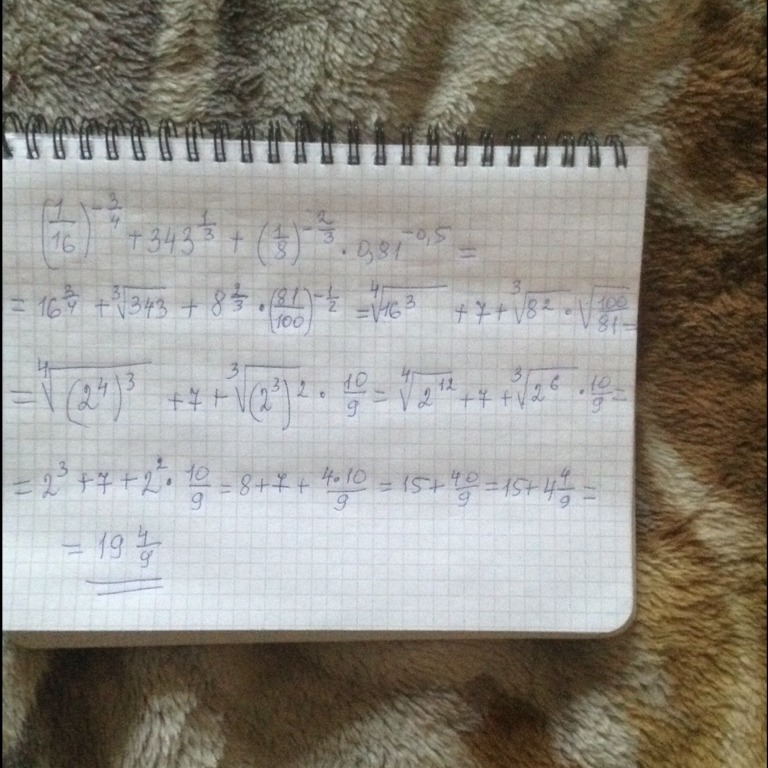 (1/16)^{-3/4} + 343^{1/3} + (1/8)^{-2/3} · 0,81^{-0,5} =
= 16^{3/4} + ∛343 + 8^{2/3} · (81/100)^{-1/2} = ∜16³ + 7 + ∛8² · √(100/81) =
= ∜(2⁴)³ + 7 + ∛(2³)² · 10/9 = ∜2¹² + 7 + ∛2⁶ · 10/9 =
= 2³ + 7 + 2² · 10/9 = 8 + 7 + 4·10/9 = 15 + 40/9 = 15 + 4 4/9 =
= 19 4/9